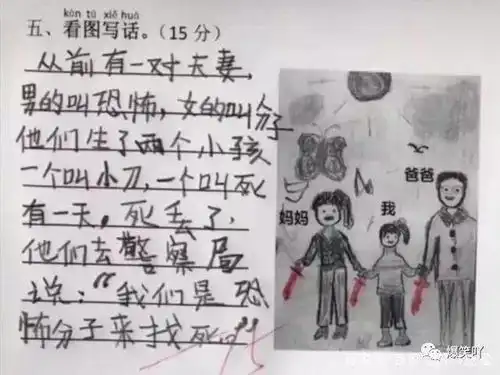 kàn tú xiě huà
五、看图写话。(15分)
从前有一对夫妻,
男的叫恐怖,女的叫分子
他们生了两个小孩
一个叫小刀,一个叫死
有一天,死丢了,
他们去警察局
说:“我们是恐
怖分子来找死。”
妈妈
我
爸爸
爆笑吖